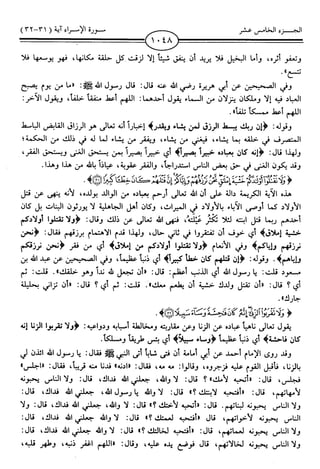 الجزء الخامس عشر ١٠٤٨ سورة الإسراء آية (٣١-٣٢)
وتعفو أثره، وأما البخيل فلا يريد أن ينفق شيئاً إلا لزقت كل حلقة مكانها، فهو يوسعها فلا
تتسع».
وفي الصحيحين عن أبي هريرة رضي الله عنه قال: قال رسول الله ﷺ: «ما من يوم يصبح
العباد فيه إلا وملكان ينزلان من السماء يقول أحدهما: اللهم أعط منفقاً خلفاً، ويقول الآخر:
اللهم أعط ممسكاً تلفاً».
وقوله: ﴿إن ربك يبسط الرزق لمن يشاء ويقدر﴾ إخباراً أنه تعالى هو الرزاق القابض الباسط
المتصرف في خلقه بما يشاء، فيغني من يشاء، ويفقر من يشاء لما له في ذلك من الحكمة؛
ولهذا قال: ﴿إنه كان بعباده خبيراً بصيراً﴾ أي خبيراً بصيراً بمن يستحق الغنى ويستحق الفقر،
وقد يكون الغنى في حق بعض الناس استدراجاً، والفقر عقوبة، عياذاً بالله من هذا وهذا.
﴿وَلَا تَقْتُلُوا أَوْلَادَكُمْ خَشْيَةَ إِمْلَاقٍ نَحْنُ نَرْزُقُهُمْ وَإِيَّاكُمْ إِنَّ قَتْلَهُمْ كَانَ خِطْئًا كَبِيرًا﴾.
هذه الآية الكريمة دالة على أن الله تعالى أرحم بعباده من الوالد بولده، لأنه ينهى عن قتل
الأولاد كما أوصى الآباء بالأولاد في الميراث، وكان أهل الجاهلية لا يورثون البنات بل كان
أحدهم ربما قتل ابنته لئلا تكثر عيلته، فنهى الله تعالى عن ذلك وقال: ﴿ولا تقتلوا أولادكم
خشية إملاق﴾ أي خوف أن تفتقروا في ثاني حال، ولهذا قدم الاهتمام برزقهم فقال: ﴿نحن
نرزقهم وإياكم﴾ وفي الأنعام ﴿ولا تقتلوا أولادكم من إملاق﴾ أي من فقر ﴿نحن نرزقكم
وإياهم﴾. وقوله: ﴿إن قتلهم كان خطأ كبيراً﴾ أي ذنباً عظيماً، وفي الصحيحين عن عبد الله بن
مسعود قلت: يا رسول الله أي الذنب أعظم: قال: «أن تجعل لله نداً وهو خلقك». قلت: ثم
أي؟ قال: «أن تقتل ولدك خشية أن يطعم معك». قلت: ثم أي؟ قال: «أن تزاني بحليلة
جارك».
﴿وَلَا تَقْرَبُوا الزِّنَا إِنَّهُ كَانَ فَاحِشَةً وَسَاءَ سَبِيلًا﴾.
يقول تعالى ناهياً عباده عن الزنا وعن مقاربته ومخالطة أسبابه ودواعيه: ﴿ولا تقربوا الزنا إنه
كان فاحشة﴾ أي ذنباً عظيماً ﴿وساء سبيلاً﴾ أي بئس طريقاً ومسلكاً.
وقد روى الإمام أحمد عن أبي أمامة أن فتى شاباً أتى النبي ﷺ فقال: يا رسول الله ائذن لي
بالزنا، فأقبل القوم عليه فزجروه، وقالوا: مه مه، فقال: «ادنه» فدنا منه قريباً، فقال: «اجلس»
فجلس، قال: «أتحبه لأمك؟» قال: لا والله، جعلني الله فداك، قال: «ولا الناس يحبونه
لأمهاتهم، قال: «أفتحبه لابنتك؟» قال: لا والله يا رسول الله، جعلني الله فداك، قال:
ولا الناس يحبونه لبناتهم. قال: «أفتحبه لأختك؟» قال: لا والله، جعلني الله فداك، قال: ولا
الناس يحبونه لأخواتهم، قال: «أفتحبه لعمتك؟» قال: لا والله، جعلني الله فداك، قال:
ولا الناس يحبونه لعماتهم، قال: «أفتحبه لخالتك؟» قال: لا والله، جعلني الله فداك، قال:
ولا الناس يحبونه لخالاتهم، قال فوضع يده عليه، وقال: «اللهم اغفر ذنبه، وطهر قلبه،